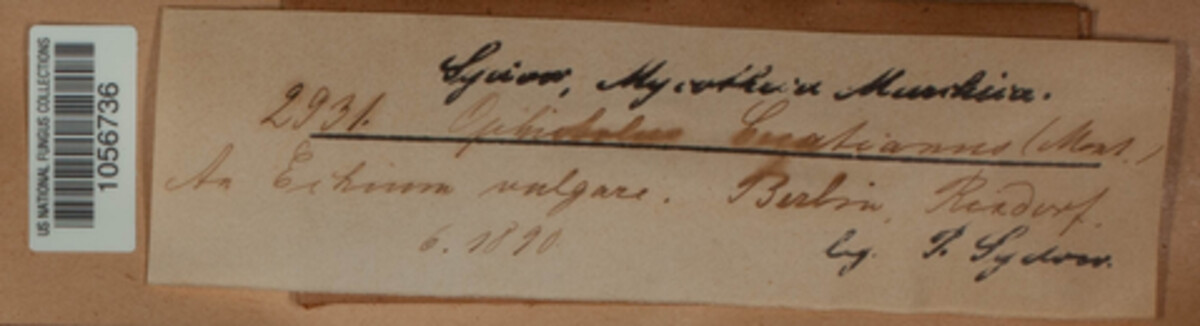 US NATIONAL FUNGUS COLLECTIONS
1056736
Sydow, Mycotheca Marchica.
2931. Ophiobolus (Mont.)
An Echium vulgare. Berlin, Rixdorf.
6. 1890
leg. P. Sydow.